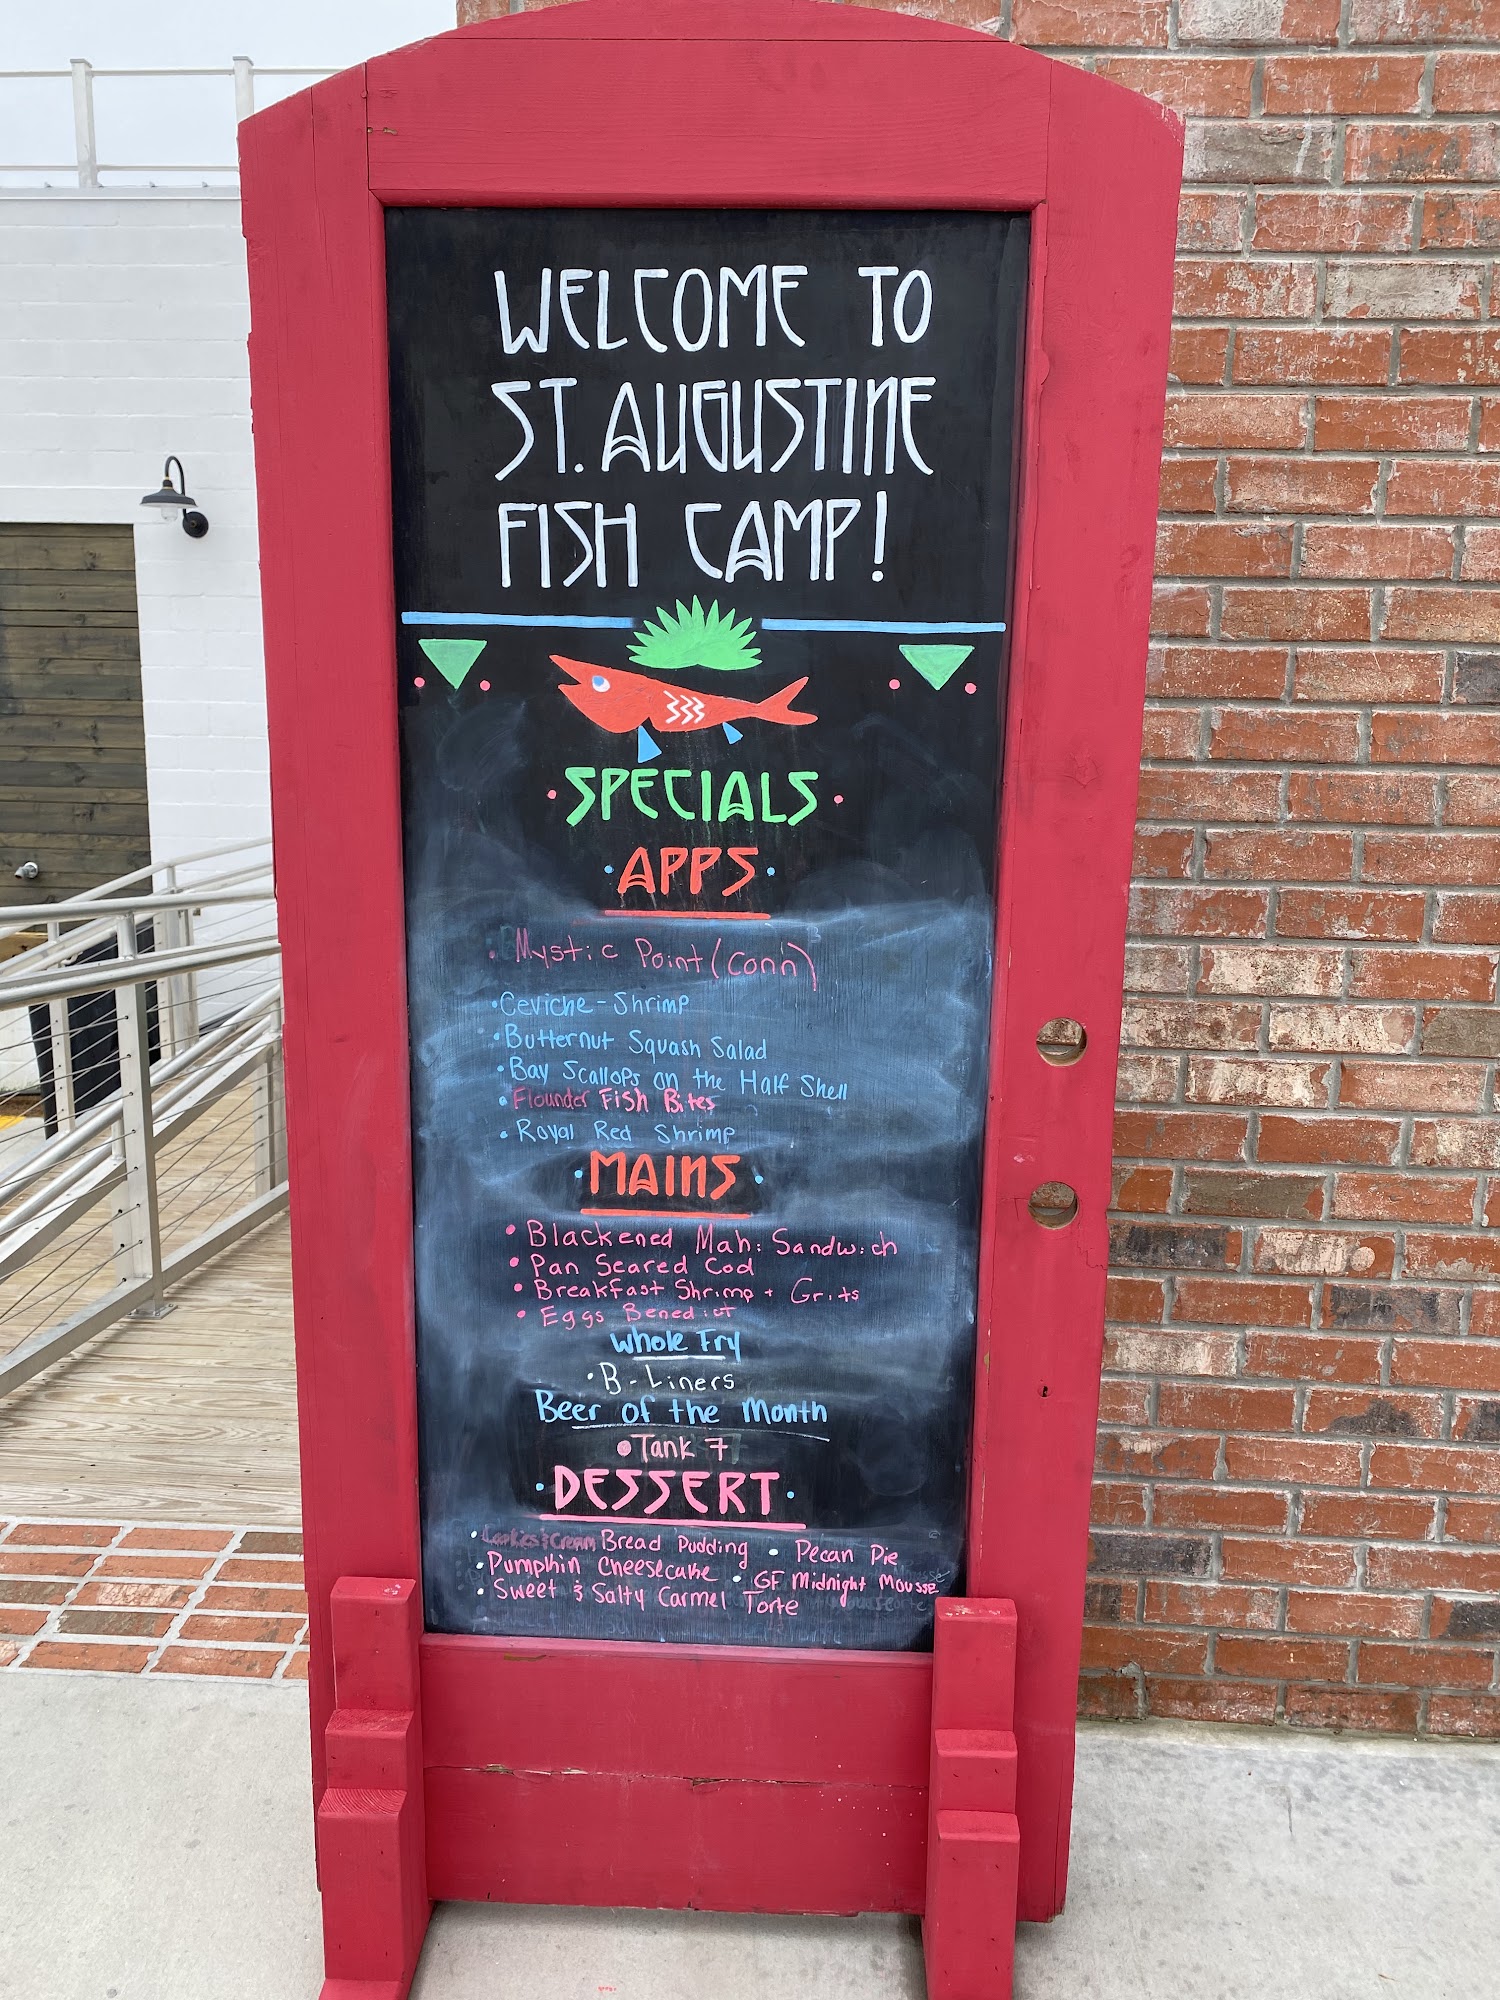 WELCOME TO
ST. AUGUSTINE
FISH CAMP!
SPECIALS
APPS
• Mystic Point (Conn)
• Ceviche - Shrimp
• Butternut Squash Salad
• Bay Scallops on the Half Shell
• Flounder Fish Bites
• Royal Red Shrimp
MAINS
• Blackened Mahi Sandwich
• Pan Seared Cod
• Breakfast Shrimp + Grits
• Eggs Benedict
Whole Fry
• B-Liners
Beer of the Month
• Tank 7
DESSERT
• Cream Bread Pudding • Pecan Pie
• Pumpkin Cheesecake • GF Midnight Mousse
• Sweet & Salty Carmel Torte